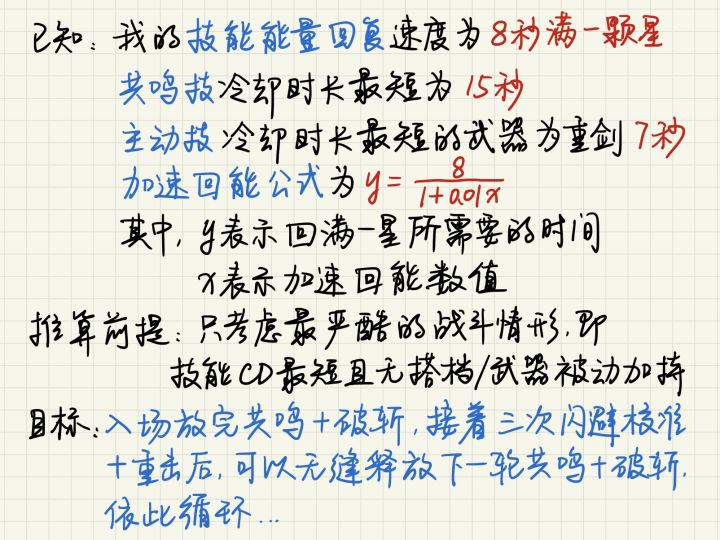 已知：我的技能能量回复速度为8秒满一颗星
共鸣技冷却时长最短为15秒
主动技冷却时长最短的武器为重剑7秒
加速回能公式为 y = 8/(1+0.01x)
其中，y表示回满一星所需要的时间
x表示加速回能数值
推算前提：只考虑最严酷的战斗情形，即
技能CD最短且无搭档/武器被动加持
目标：入场放完共鸣+破斩，接着三次闪避校准
+重击后，可以无缝释放下一轮共鸣+破斩，
依此循环...